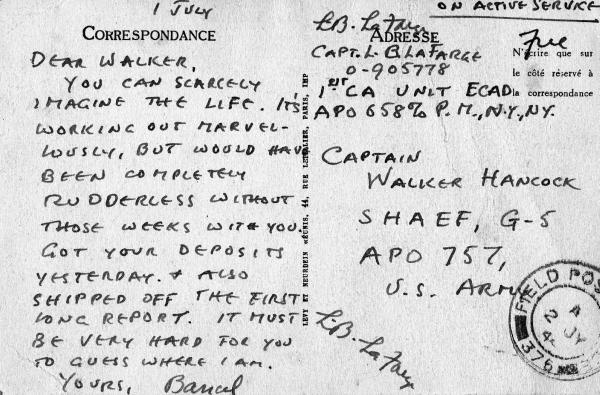 1 JULY
CORRESPONDANCE
DEAR WALKER,
YOU CAN SCARCELY
IMAGINE THE LIFE. IT'S
WORKING OUT MARVEL-
LOUSLY, BUT WOULD HAVE
BEEN COMPLETELY
RUDDERLESS WITHOUT
THOSE WEEKS WITH YOU.
GOT YOUR DEPOSITS
YESTERDAY. & ALSO
SHIPPED OFF THE FIRST
LONG REPORT. IT MUST
BE VERY HARD FOR YOU
TO GUESS WHERE I AM.
YOURS, Bancel
LEVY ET NEURDEIN RÉUNIS, 44, RUE LETELLIER, PARIS, IMP
ON ACTIVE SERVICE
L.B. LaFarge
ADRESSE
Free
N'écrire que sur
le côté réservé à
la correspondance
CAPT. L B LAFARGE
O-905778
1ST CA UNIT ECAD
APO 658 % P.M., N.Y., N.Y.
CAPTAIN
WALKER HANCOCK
SHAEF, G-5
APO 757,
U.S. ARMY
L.B. LaFarge
FIELD POS
2 JY 4
376